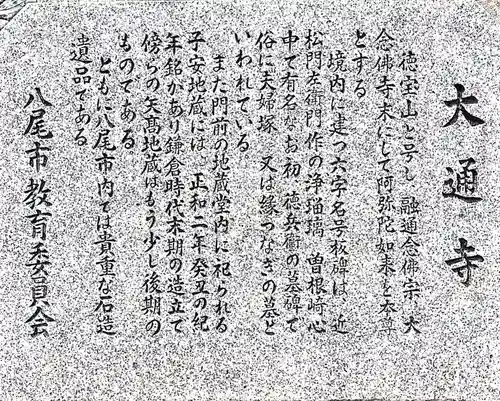 大通寺
徳宝山と号し、融通念佛宗、大
念佛寺末にして阿弥陀如来を本尊
とする。
境内に建つ六字名号板碑は、近
松門左衛門作の浄瑠璃、曽根崎心
中で有名なお初、徳兵衛の墓碑で
俗に夫婦塚、又は縁つなぎの墓と
いわれている。
また門前の地蔵堂内に祀られる
子安地蔵には、正和二年癸丑の紀
年銘があり鎌倉時代末期の造立で
傍らの矢髙地蔵はもう少し後期の
ものである。
ともに八尾市内では貴重な石造
遺品である
八尾市教育委員会